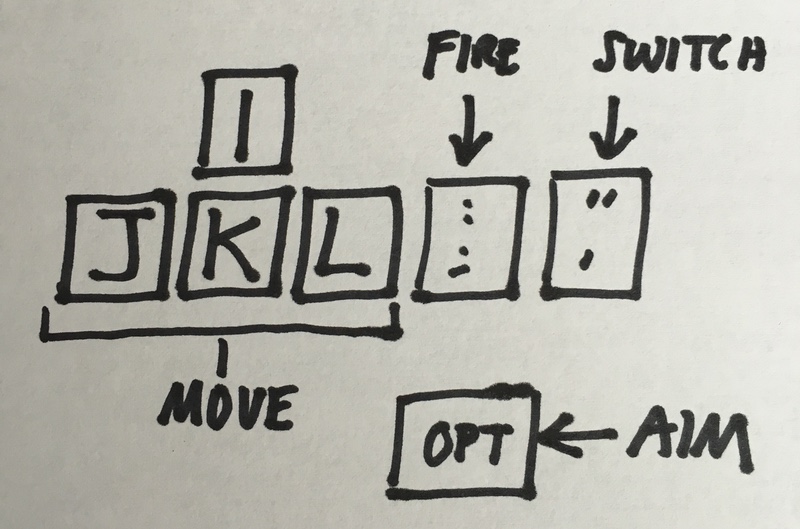 FIRE SWITCH
I
J K L : ; " '
MOVE
OPT AIM